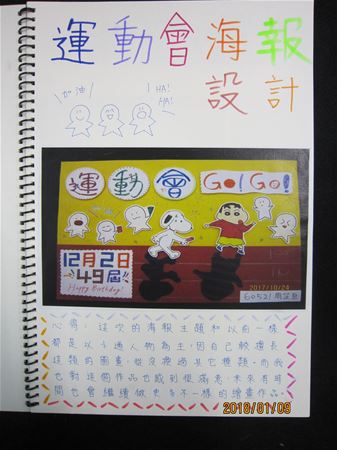 運動會海報
設計
加油
HA!
HA!
運動會 GO! GO!
12月2日
49屆!!
Happy Birthday!
2017/10/24
60521
心得：這次的海報主題和以前一樣
都是以卡通人物為主，因自己較擅長
這類的圖畫，從沒換過其它種類。而我
也對這個作品也感到很滿意，未來有時
間也會繼續做更多不一樣的繪畫作品。
2018/01/09